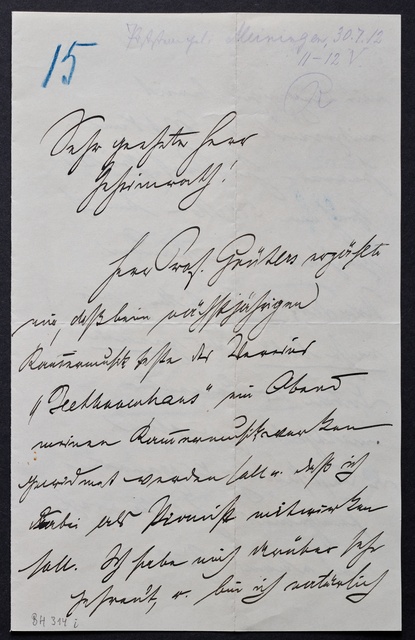 15
Meiningen, 30.7.12
11–12 V
R
Sehr geehrter Herr
Geheimrath!
Herr Prof. Grüters erzählte
mir, daß beim nächstjährigen
Kam̅ermusikfeste des Vereins
„Beethovenhaus" ein Abend
meinen Kam̅ermusikwerken
gewidmet werden soll u. daß ich
dabei als Pianist mitwirken
soll. Ich habe mich darüber sehr
gefreut, u. bin ich natürlich
BH 314 i